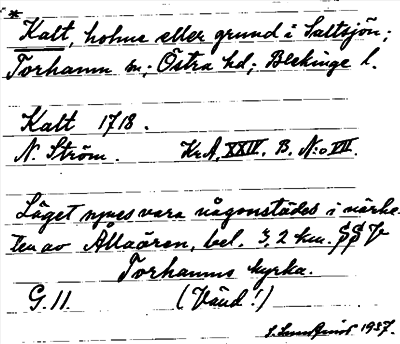 * Kalt, holme eller grund i Saltsjön;
Torhamn sn; Östra hd; Blekinge l.
Kalt 1718.
N. Ström. KrA, XXIV. B. N:o VII.
Läget synes vara någonstädes i närhe-
ten av Allaören, bel. 3,2 km. SSV
Torhamns kyrka.
G. 11. (Vänd!)
1937.